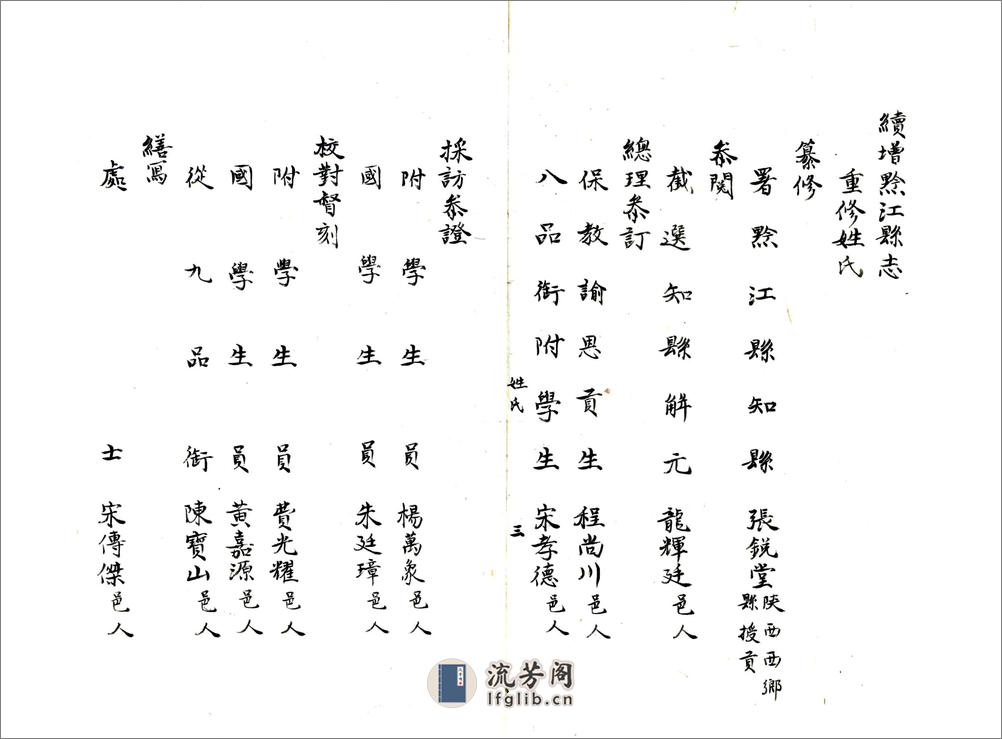 續增黔江縣志
重修姓氏
篡修
署黔江縣知縣 張銳堂 陝西西鄉縣授貢
叅閱
截選知縣解元 龍輝廷 邑人
總理叅訂
保教諭恩貢生 程尚川 邑人
八品銜附學生 宋孝德 邑人
姓氏 三
採訪叅證
附學生員 楊萬象 邑人
國學生員 朱廷璋 邑人
校對督刻
附學生員 費光耀 邑人
國學生員 黃嘉源 邑人
從九品銜 陳寶山 邑人
繕寫
處士 宋傳傑 邑人
流芳阁
lfglib.cn